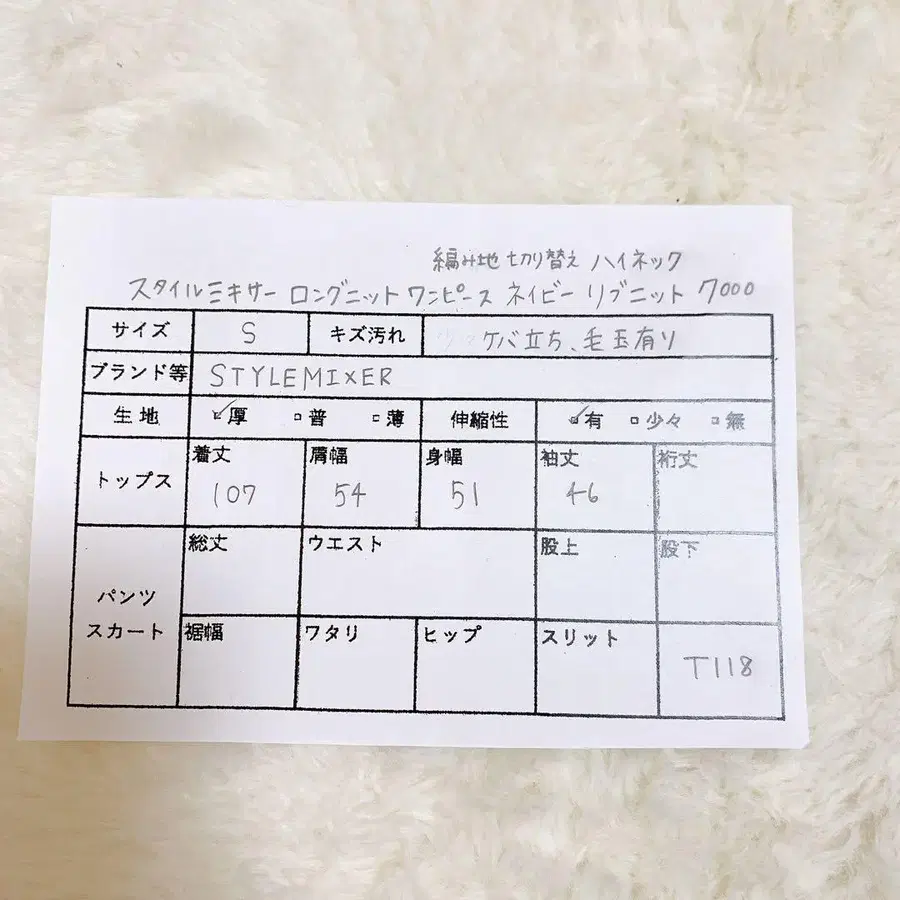 編み地 切り替え ハイネック
スタイルミキサー ロングニット ワンピース ネイビー リブニット 7000
サイズ S キズ汚れ ケバ立ち、毛玉有り
ブランド等 STYLEMIXER
生地 厚 普 薄 伸縮性 有 少々 無
トップス 着丈 肩幅 身幅 袖丈 裄丈
107 54 51 46
パンツ スカート 総丈 ウエスト 股上 股下
裾幅 ワタリ ヒップ スリット
T118